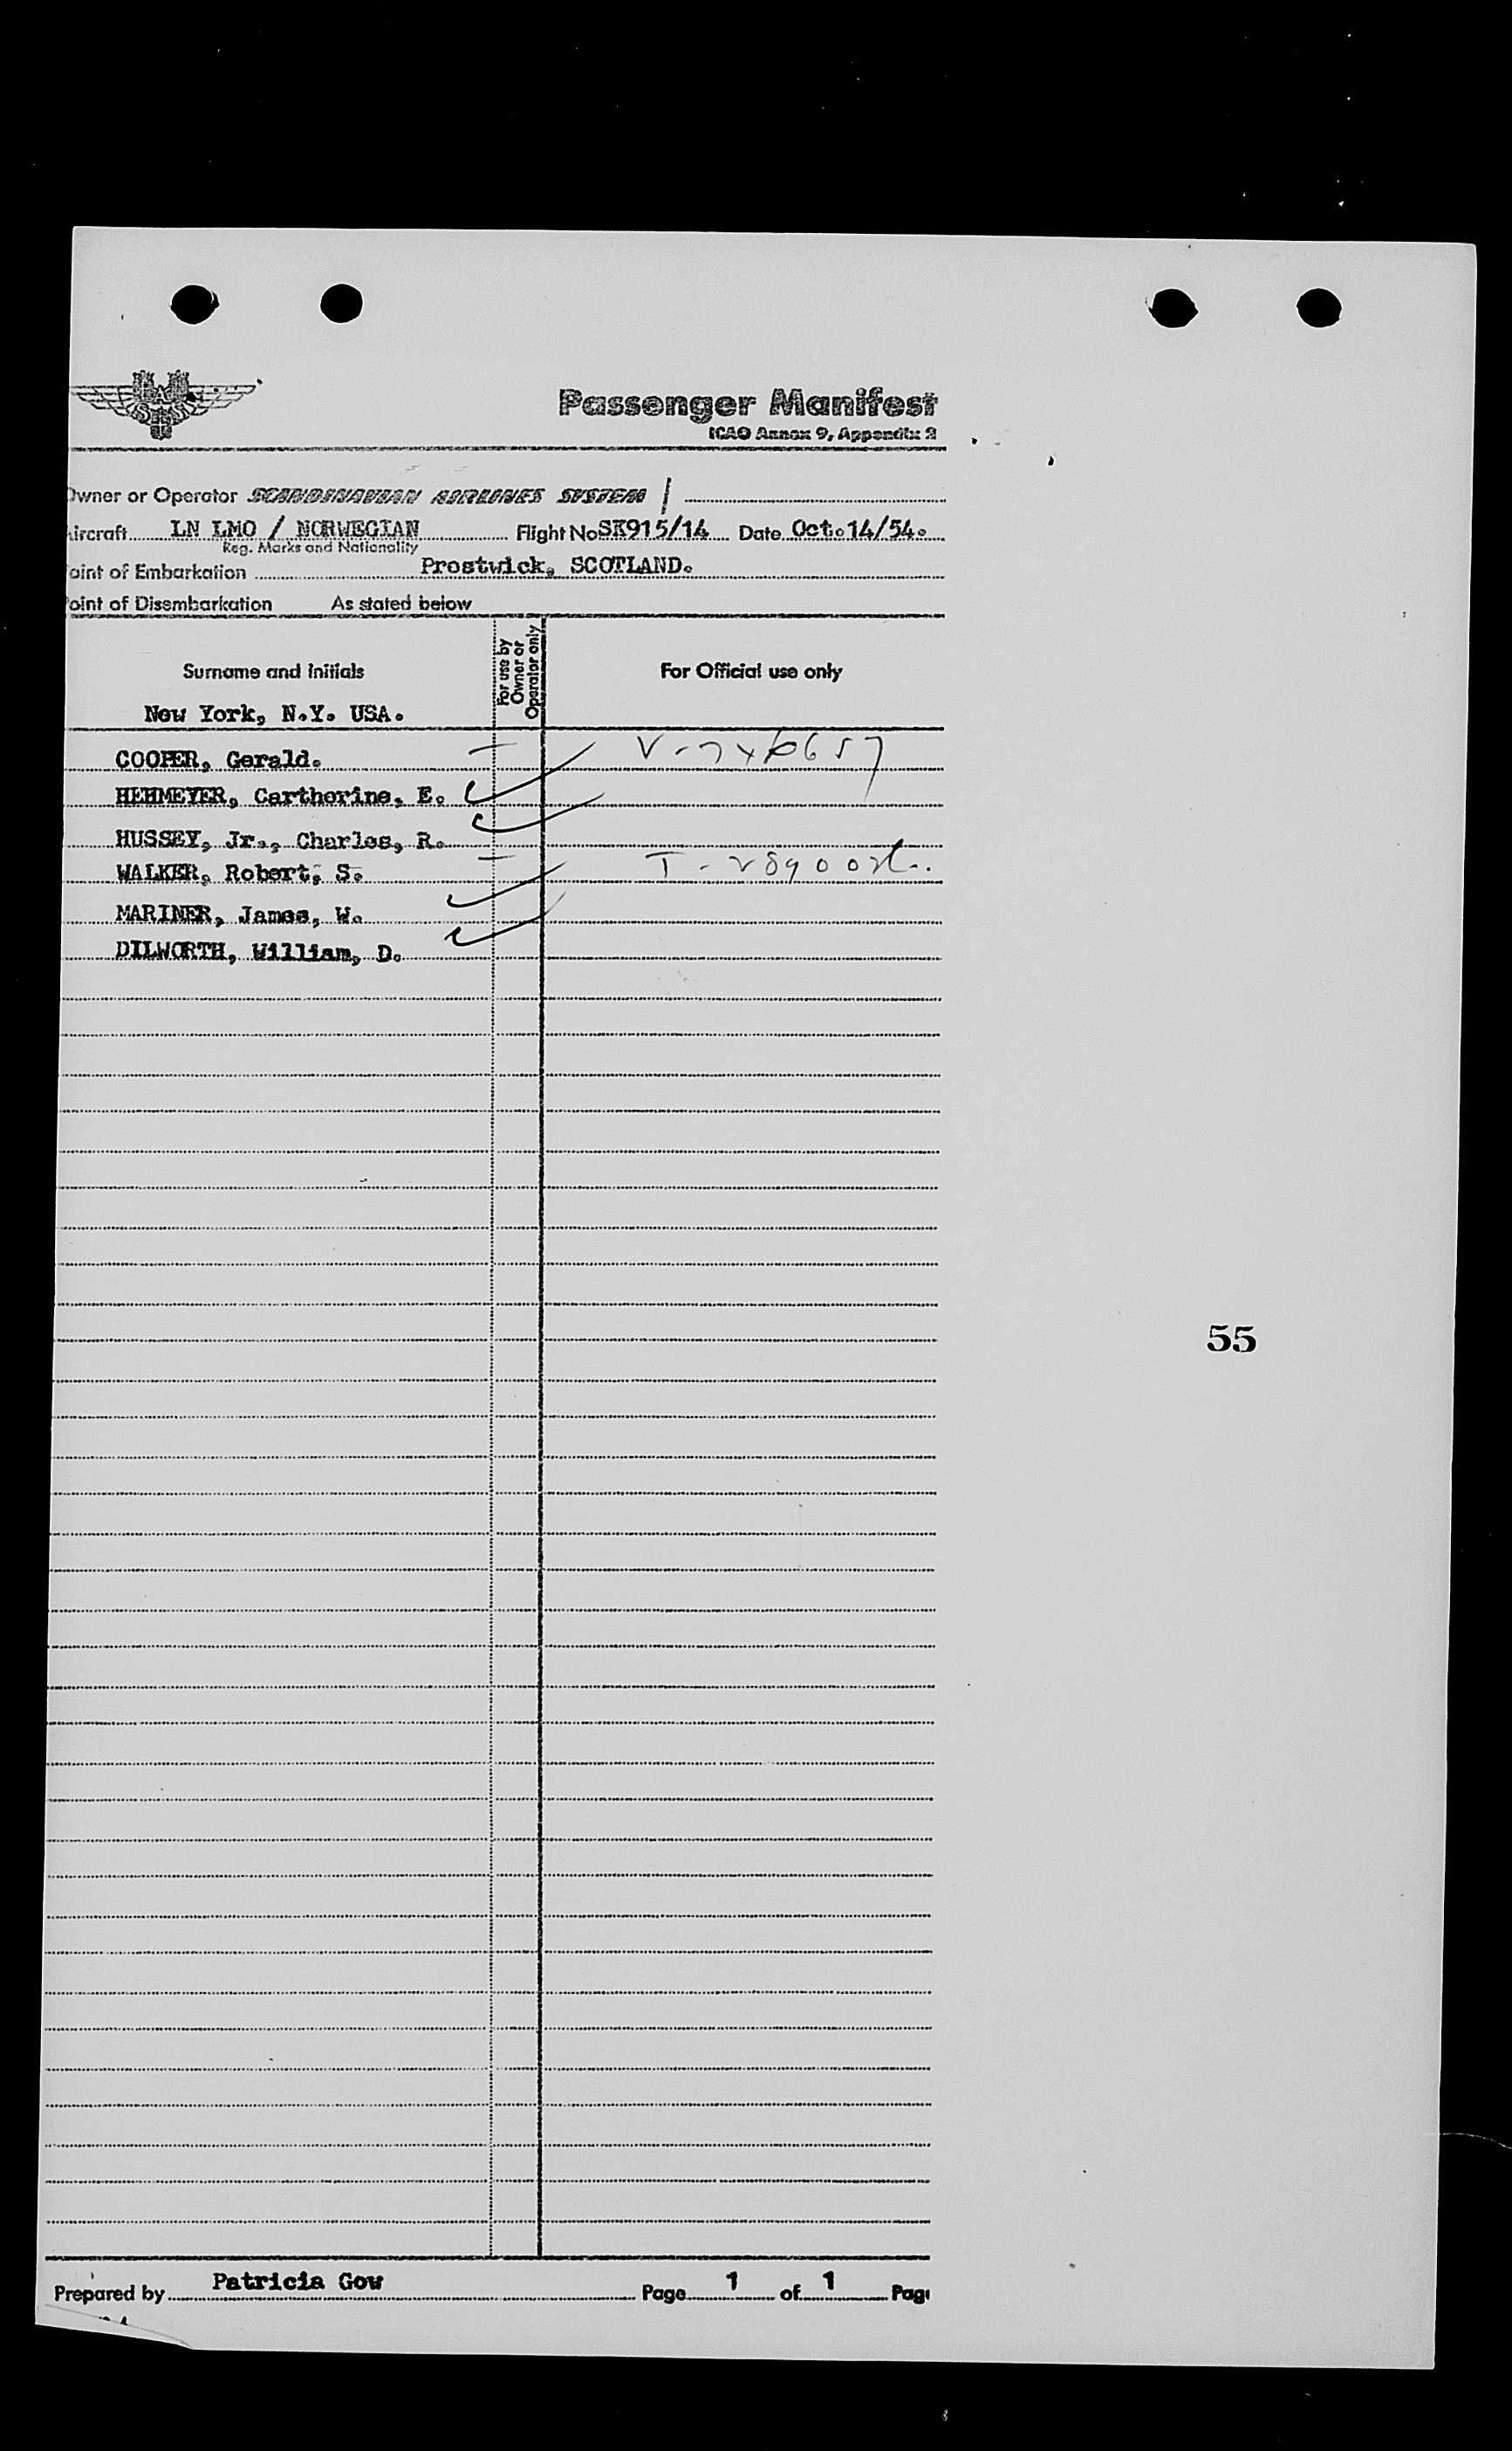 SAS
Passenger Manifest
ICAO Annex 9, Appendix 2
Owner or Operator SCANDINAVIAN AIRLINES SYSTEM /
Aircraft LN LMO / NORWEGIAN Flight No SK915/14 Date Oct.14/54.
Reg. Marks and Nationality
Point of Embarkation Prestwick, SCOTLAND.
Point of Disembarkation As stated below
Surname and initials For use by Owner or Operator only For Official use only
New York, N.Y. USA.
COOPER, Gerald. —
HEHMEYER, Cartherine, E.
HUSSEY, Jr., Charles, R.
WALKER, Robert, S. —
MARINER, James, W.
DILWORTH, William, D.
55
Prepared by Patricia Gow Page 1 of 1 Page